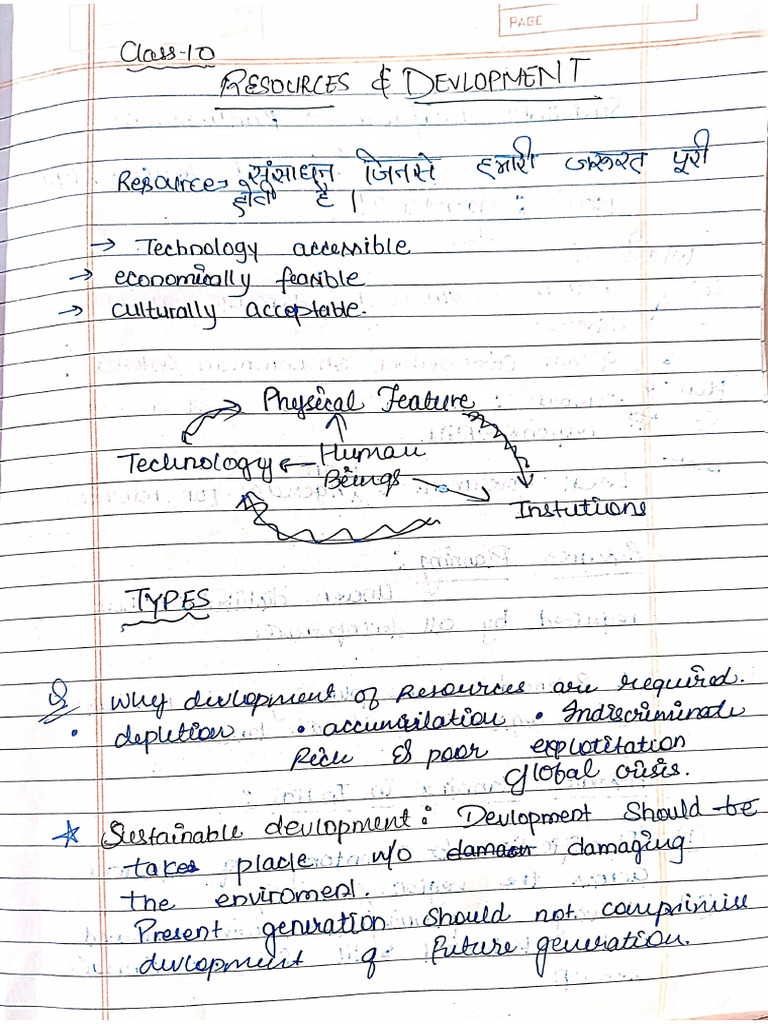 PAGE
Class-10
RESOURCES & DEVLOPMENT
Resource → संसाधन जिनसे हमारी जरूरत पूरी
होती है।
→ Technology accessible
→ economically feasible
→ culturally acceptable.
Physical Feature
Technology ← Human
Beings
Instutions
TYPES
Q Why devlopment of Resources are required.
• depletion • accumulation • Indiscriminate
Rich & poor explotitation
global crisis.
☆ Sustainable devlopment: Devlopment should be
takes place w/o damaging
the enviroment.
Present generation should not comprimise
devlopment of future generation.